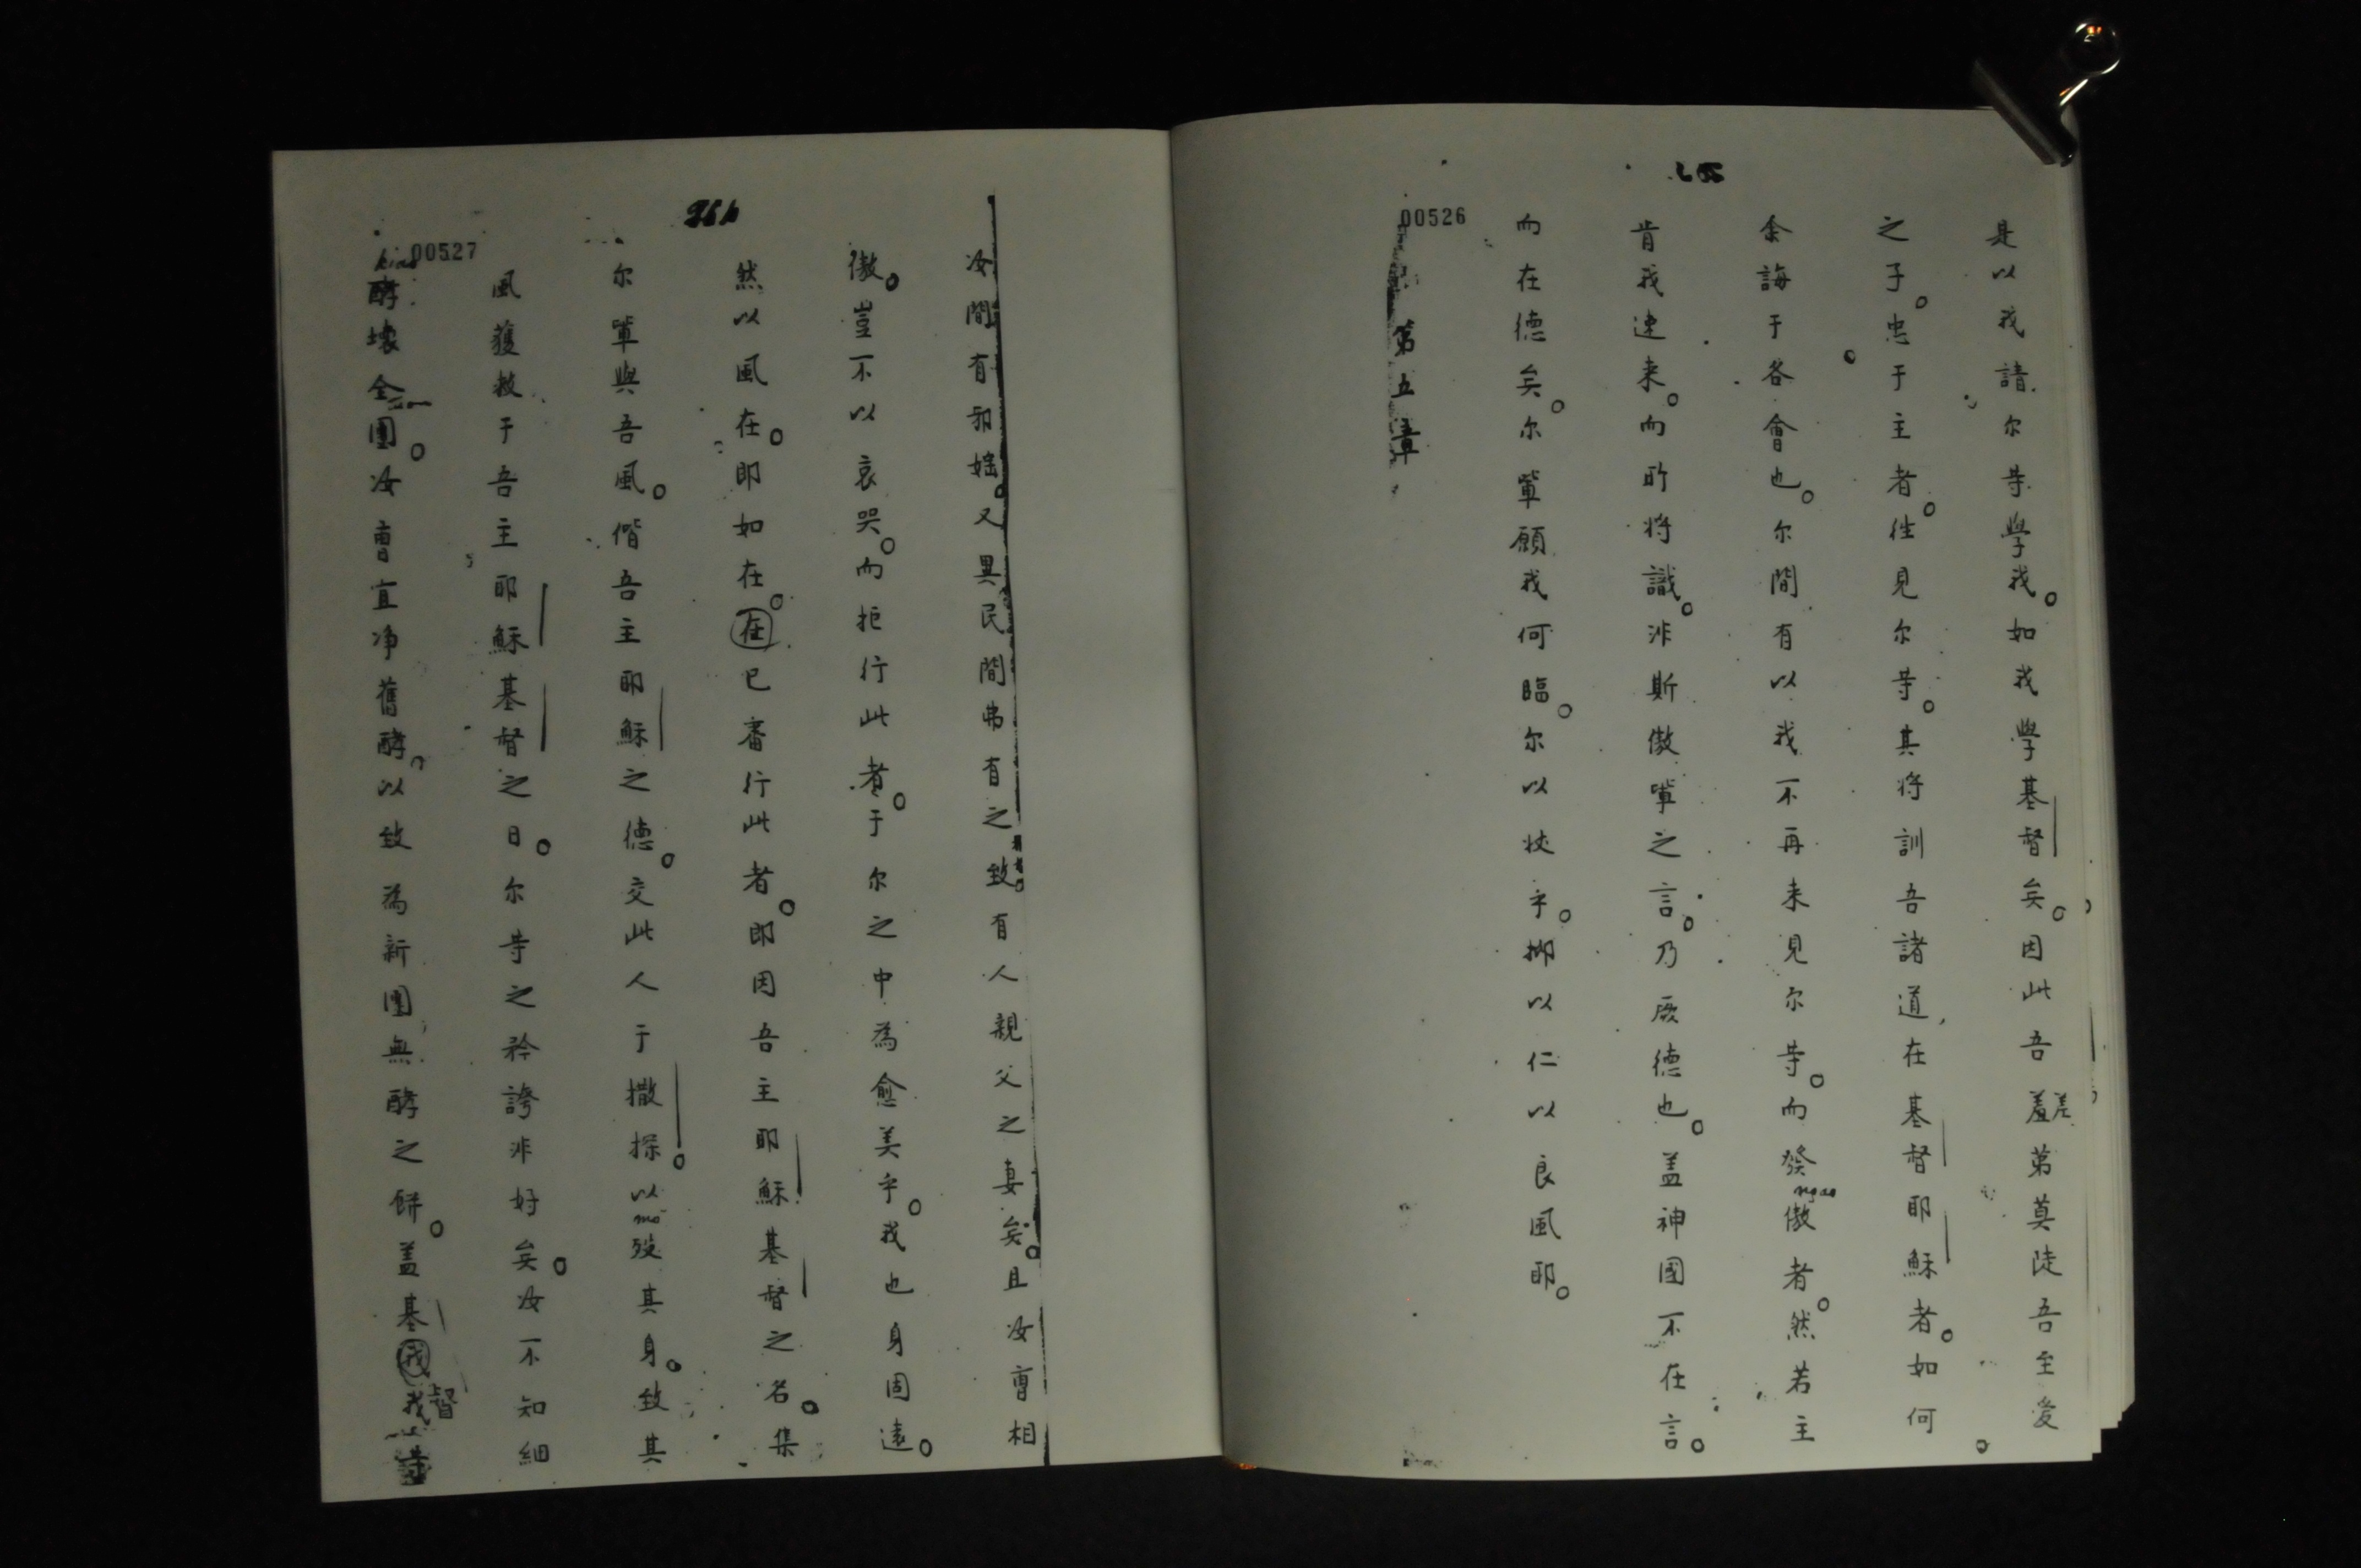 00526
是以我請尔等學我。如我學基督矣。因此吾羞差第莫陡吾至爱
之子。忠于主者。徃見尔等。其将訓吾諸道在基督耶穌者。如何
余誨于各會也。尔間有以我不再来見尔等。而發傲者。然若主
ngao
肯我速来。而所将識。非斯傲軰之言。乃厥德也。盖神國不在言。
而在德矣。尔軰願我何臨。尔以杖乎。抑以仁以良風耶。
第五章
00527
汝間有邪婬。又異民間弗有之致有人親父之妻矣。且汝曹相
傲。豈不以哀哭。而拒行此者。于尔之中為愈美乎。我也身固遠。
然以風在。即如在。在已審行此者。即因吾主耶穌基督之名。集
尔軰與吾風。偕吾主耶穌之德。交此人于撒探。以殁其身。致其
mo
風獲救于吾主耶穌基督之日。尔等之矜誇非好矣。汝不知細
酵壊全團。汝曹宜净舊酵。以致為新團無酵之餅。盖基我督我